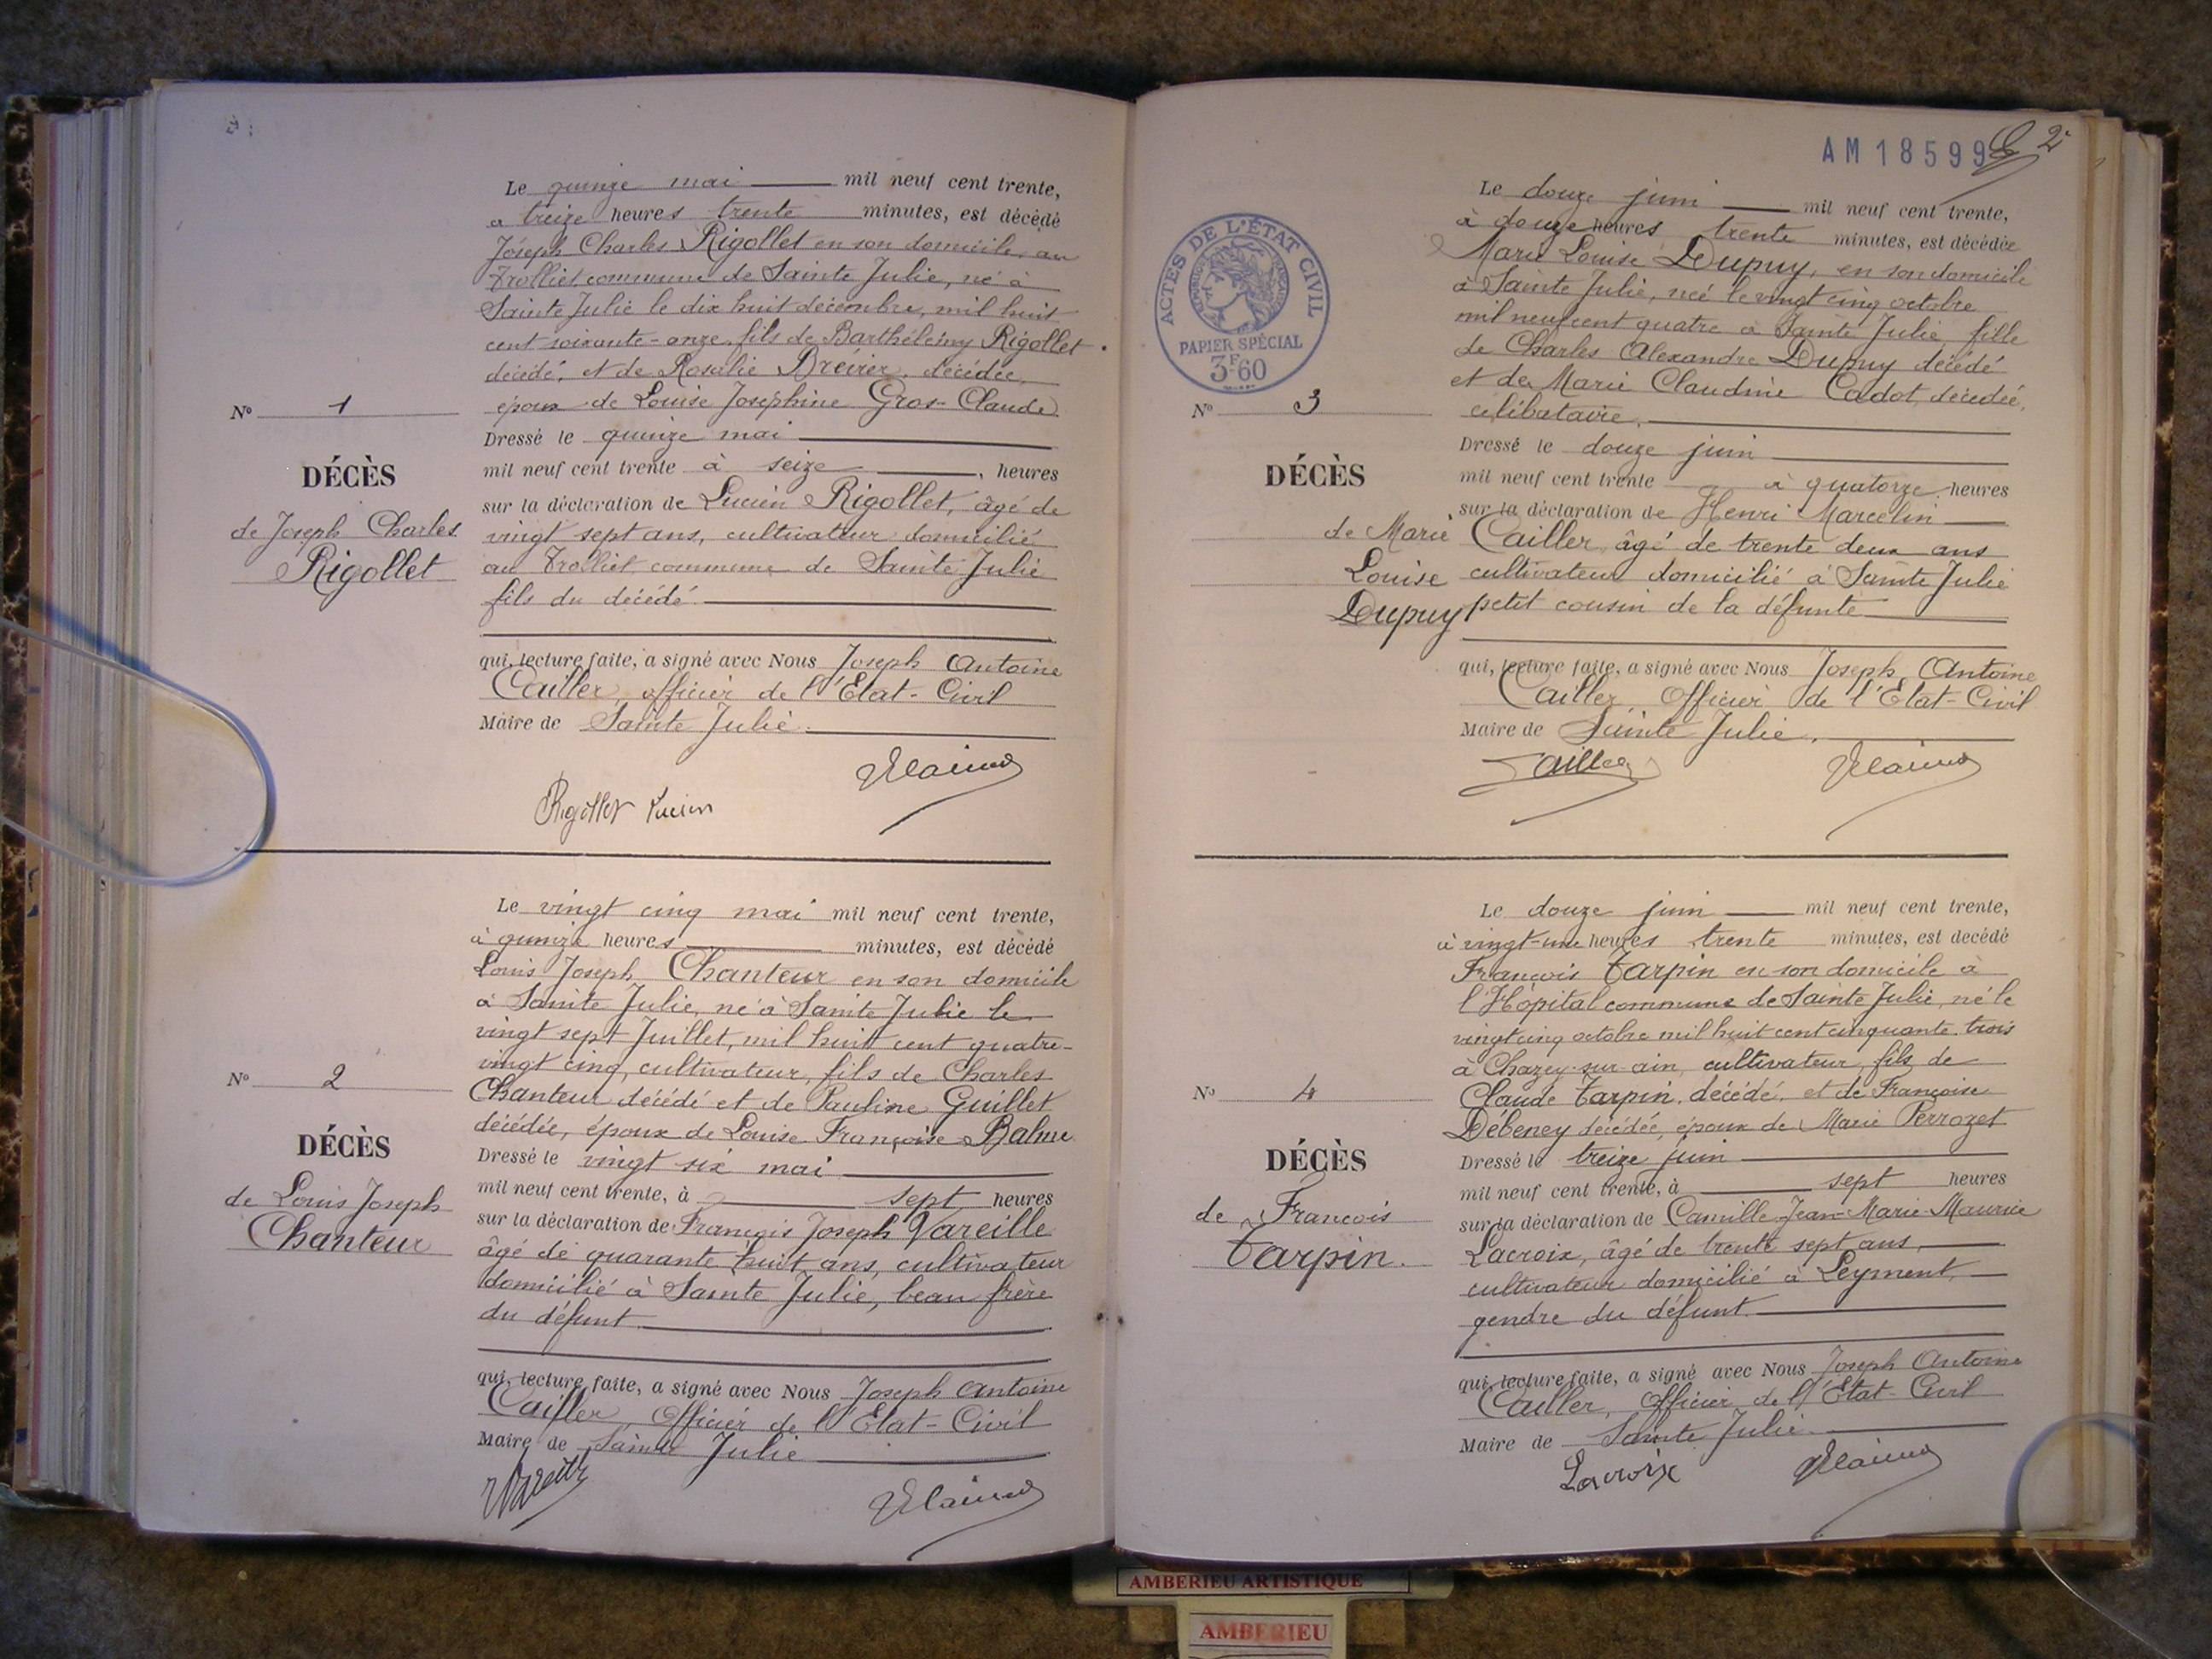 Le quinze mai mil neuf cent trente,
à treize heures trente minutes, est décédé
Joseph Charles Rigollet en son domicile au
Trolliet commune de Sainte Julie, né à
Sainte Julie le dix huit décembre, mil huit
cent soixante-onze, fils de Barthélémy Rigollet
décédé, et de Rosalie décédée,
époux de Louise Joséphine Gros-Claude
Nº 1
Dressé le quinze mai
mil neuf cent trente à seize heures
DÉCÈS
sur la déclaration de Lucien Rigollet, âgé de
de Joseph Charles
vingt sept ans, cultivateur domicilié
Rigollet
au Trolliet commune de Sainte Julie
fils du décédé.
qui, lecture faite, a signé avec Nous Joseph Antoine
Cailler, officier de l'Etat-Civil
Maire de Sainte Julie.
Rigollet Lucien
Le vingt cinq mai mil neuf cent trente,
à quinze heures minutes, est décédé
Louis Joseph Chanteur en son domicile
à Sainte Julie, né à Sainte Julie le
vingt sept Juillet, mil huit cent quatre-
vingt cinq, cultivateur, fils de Charles
Nº 2
Chanteur décédé et de Pauline Guillet
décédée, époux de Louise Françoise Balme
DÉCÈS
Dressé le vingt six mai
mil neuf cent trente, à sept heures
de Louis Joseph
Chanteur
sur la déclaration de François Joseph Vareille
âgé de quarante huit ans, cultivateur
domicilié à Sainte Julie, beau frère
du défunt
qui, lecture faite, a signé avec Nous Joseph Antoine
Cailler, Officier de l'Etat-Civil
Maire de Sainte Julie
AM18599 2
ACTES DE L'ÉTAT CIVIL
RÉPUBLIQUE FRANÇAISE
PAPIER SPÉCIAL
3F60
Le douze juin mil neuf cent trente,
à douze heures trente minutes, est décédée
Marie Louise Dupuy, en son domicile
à Sainte Julie, née le vingt cinq octobre
mil neuf cent quatre à Sainte Julie, fille
de Charles Alexandre Dupuy décédé
et de Marie Claudine Cadot, décédée,
Nº 3
célibataire.
Dressé le douze juin
DÉCÈS
mil neuf cent trente à quatorze heures
sur la déclaration de Henri Marcelin
de Marie
Cailler, âgé de trente deux ans
Louise
cultivateur domicilié à Sainte Julie
Dupuy
petit cousin de la défunte
qui, lecture faite, a signé avec Nous Joseph Antoine
Cailler, Officier de l'Etat-Civil
Maire de Sainte Julie.
Cailler
Le douze juin mil neuf cent trente,
à vingt-une heures trente minutes, est décédé
François Tarpin en son domicile à
l'Hôpital commune de Sainte Julie, né le
vingt cinq octobre mil huit cent cinquante trois
à Chazey-sur-ain, cultivateur, fils de
Nº 4
Claude Tarpin, décédé, et de Françoise
Débeney décédée, époux de Marie Perrozet
DÉCÈS
Dressé le treize juin
mil neuf cent trente, à sept heures
de François
Tarpin.
sur la déclaration de Camille Jean-Marie Maurice
Lacroix, âgé de trente sept ans,
cultivateur domicilié à Leyment,
gendre du défunt.
qui, lecture faite, a signé avec Nous Joseph Antoine
Cailler, Officier de l'Etat-Civil
Maire de Sainte Julie.
Lacroix
AMBERIEU ARTISTIQUE
AMBERIEU